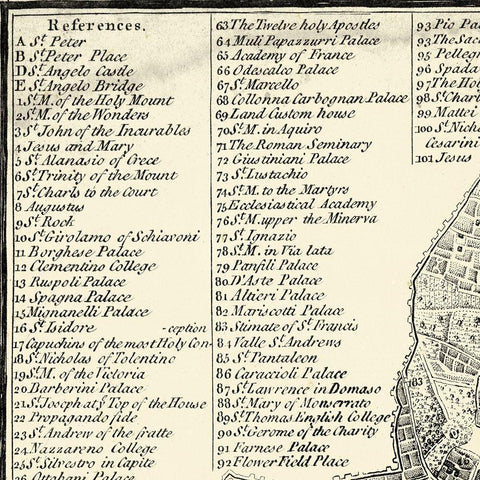 References.
A St. Peter
B St. Peter Place
D St. Angelo Castle
E St. Angelo Bridge
1 St. M. of the Holy Mount
2 St. M. of the Wonders
3 St. John of the Incurables
4 Jesus and Mary
5 St. Alanasio of Crece
6 St. Trinity of the Mount
7 St. Charls to the Court
8 Augustus
9 St. Rock
10 St. Girolamo of Schiavoni
11 Borghese Palace
12 Clementino College
13 Ruspoli Palace
14 Spagna Palace
15 Mignanelli Palace
16 St. Isidore -ception
17 Capuchins of the most Holy Con-
18 St. Nicholas of Tolentino
19 St. M. of the Victoria
20 Barberini Palace
21 St. Joseph at ye Top of the House
22 Propagando fide
23 St. Andrew of the fratte
24 Nazzareno College
25 St. Silvestro in Capite
26 Ottobani Palace
63 The Twelve holy Apostles
64 Muli Papazzurri Palace
65 Academy of France
66 Odescalco Palace
67 St. Marcello
68 Collonna Carbognan Palace
69 Land Custom house
70 St. M. in Aquiro
71 The Roman Seminary
72 Giustiniani Palace
73 St. Eustachio
74 St. M. to the Martyrs
75 Ecclesiastical Academy
76 St. M. upper the Minerva
77 St. Ignazio
78 St. M. in Via lata
79 Panfili Palace
80 D'Aste Palace
81 Altieri Palace
82 Mariscotti Palace
83 Stimate of St. Francis
84 Valle St. Andrews
85 St. Pantaleon
86 Caraccioli Palace
87 St. Lawrence in Domaso
88 St. Mary of Monserrato
89 St. Thomas English College
90 St. Gerome of the Charity
91 Farnese Palace
92 Flower Field Place
93 Pio Pa
93 The Sac
95 Pellegr
96 Spada
97 The Hol
98 St. Charl
99 Mattei
100 St. Nicho
Cesarini
101 Jesus
183